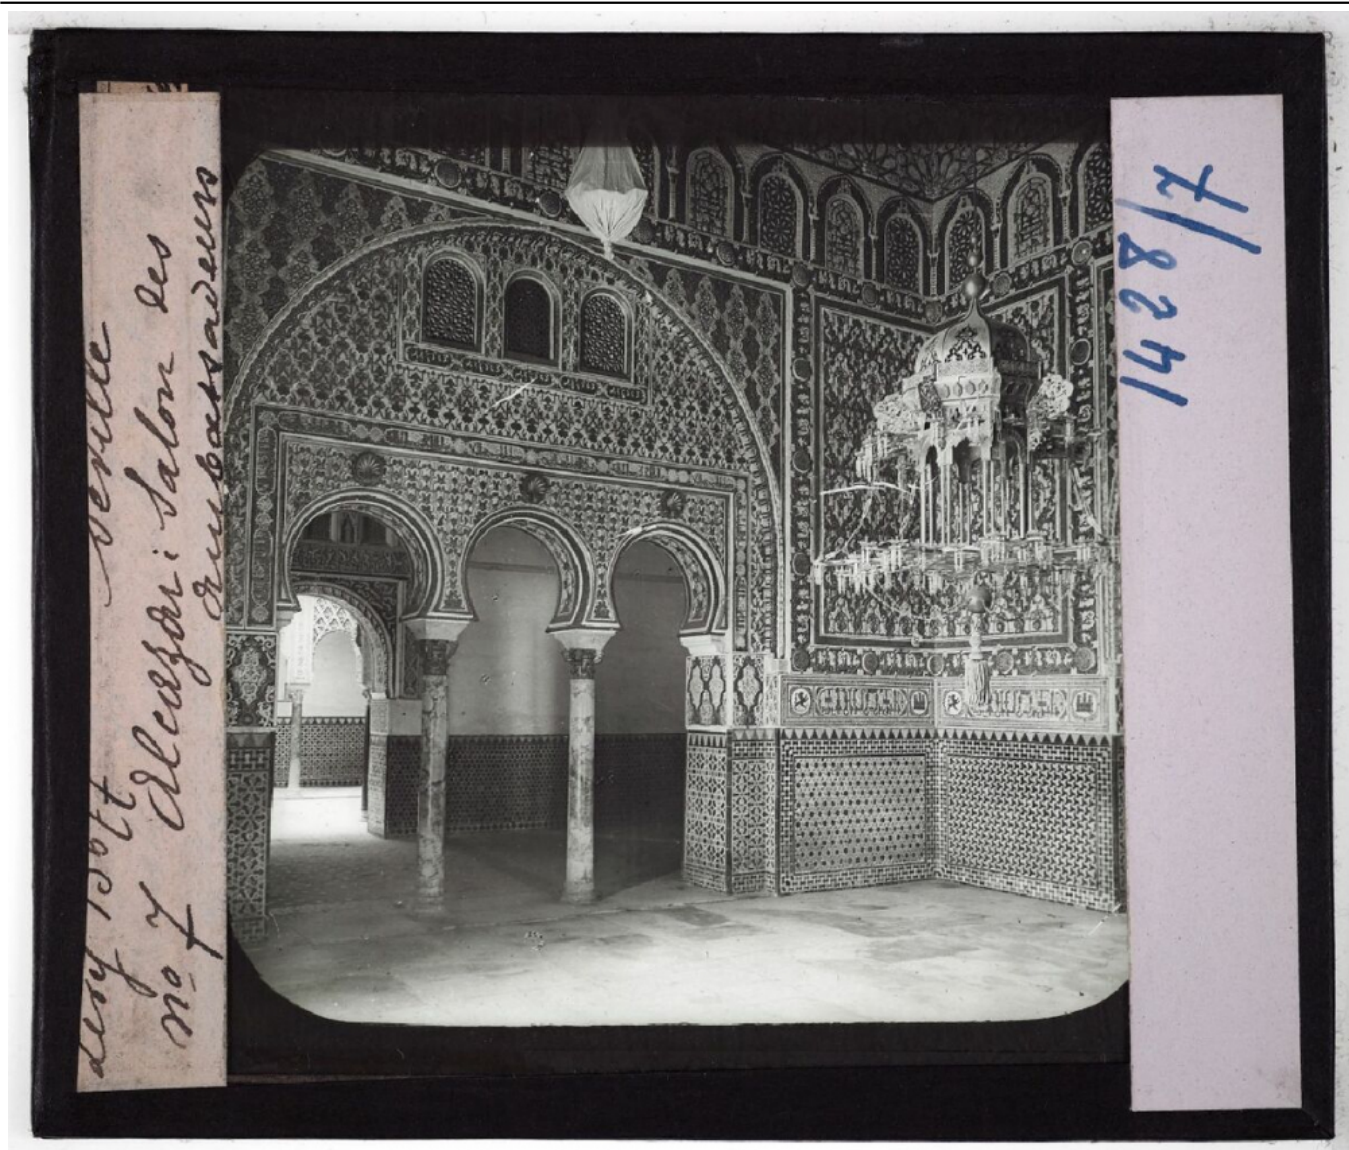 Séville
No 7 Alcazar: Salon des
ambassadeurs
1428/7